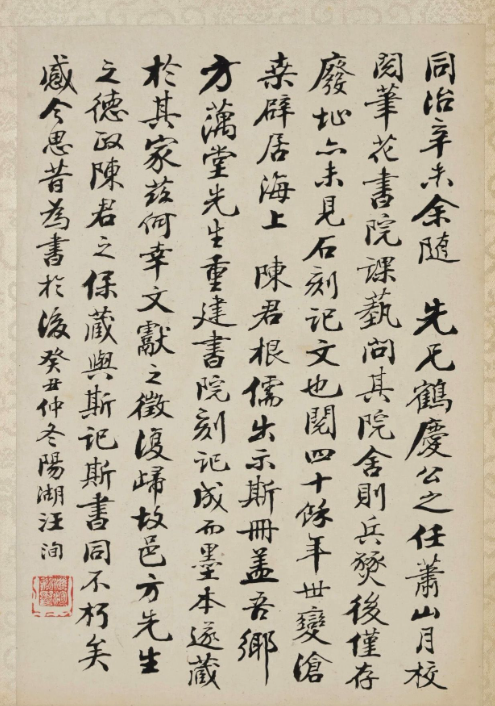 同治辛未余隨 先兄鶴慶公之任蕭山月校
閱筆花書院課藝問其院舍則兵燹後僅存
廢址亦未見石刻記文也閱四十餘年世變滄
桑辟居海上 陳君根儒出示斯冊蓋吾鄉
方藕堂先生重建書院刻記成而墨本遂藏
於其家茲何幸文獻之徵復歸故邑方先生
之德政陳君之保藏與斯記斯書同不朽矣
感今思昔為書於後癸丑仲冬陽湖汪洵